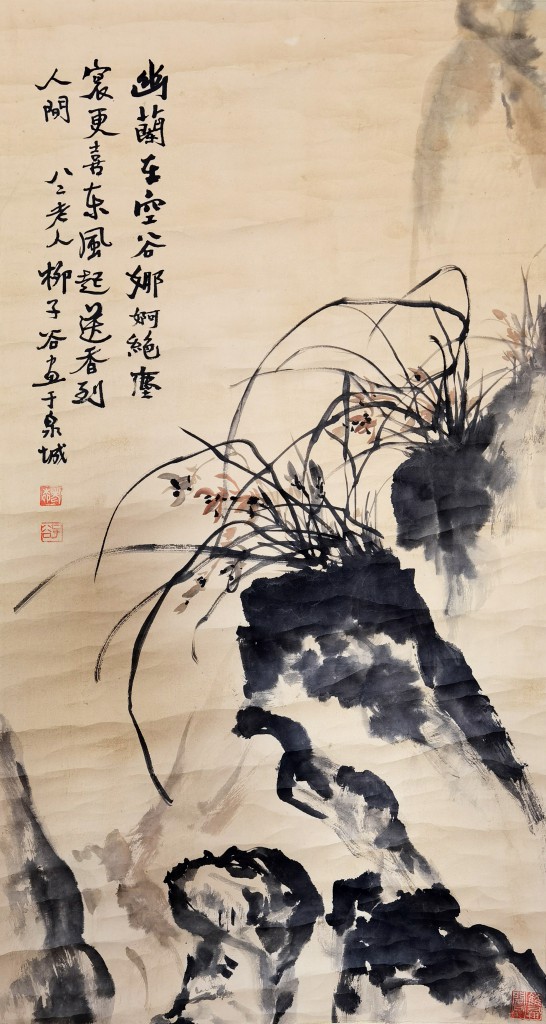 幽蘭在空谷娜婀絕塵
寰更喜东風起送香到
人間 八二老人柳子谷画于泉城